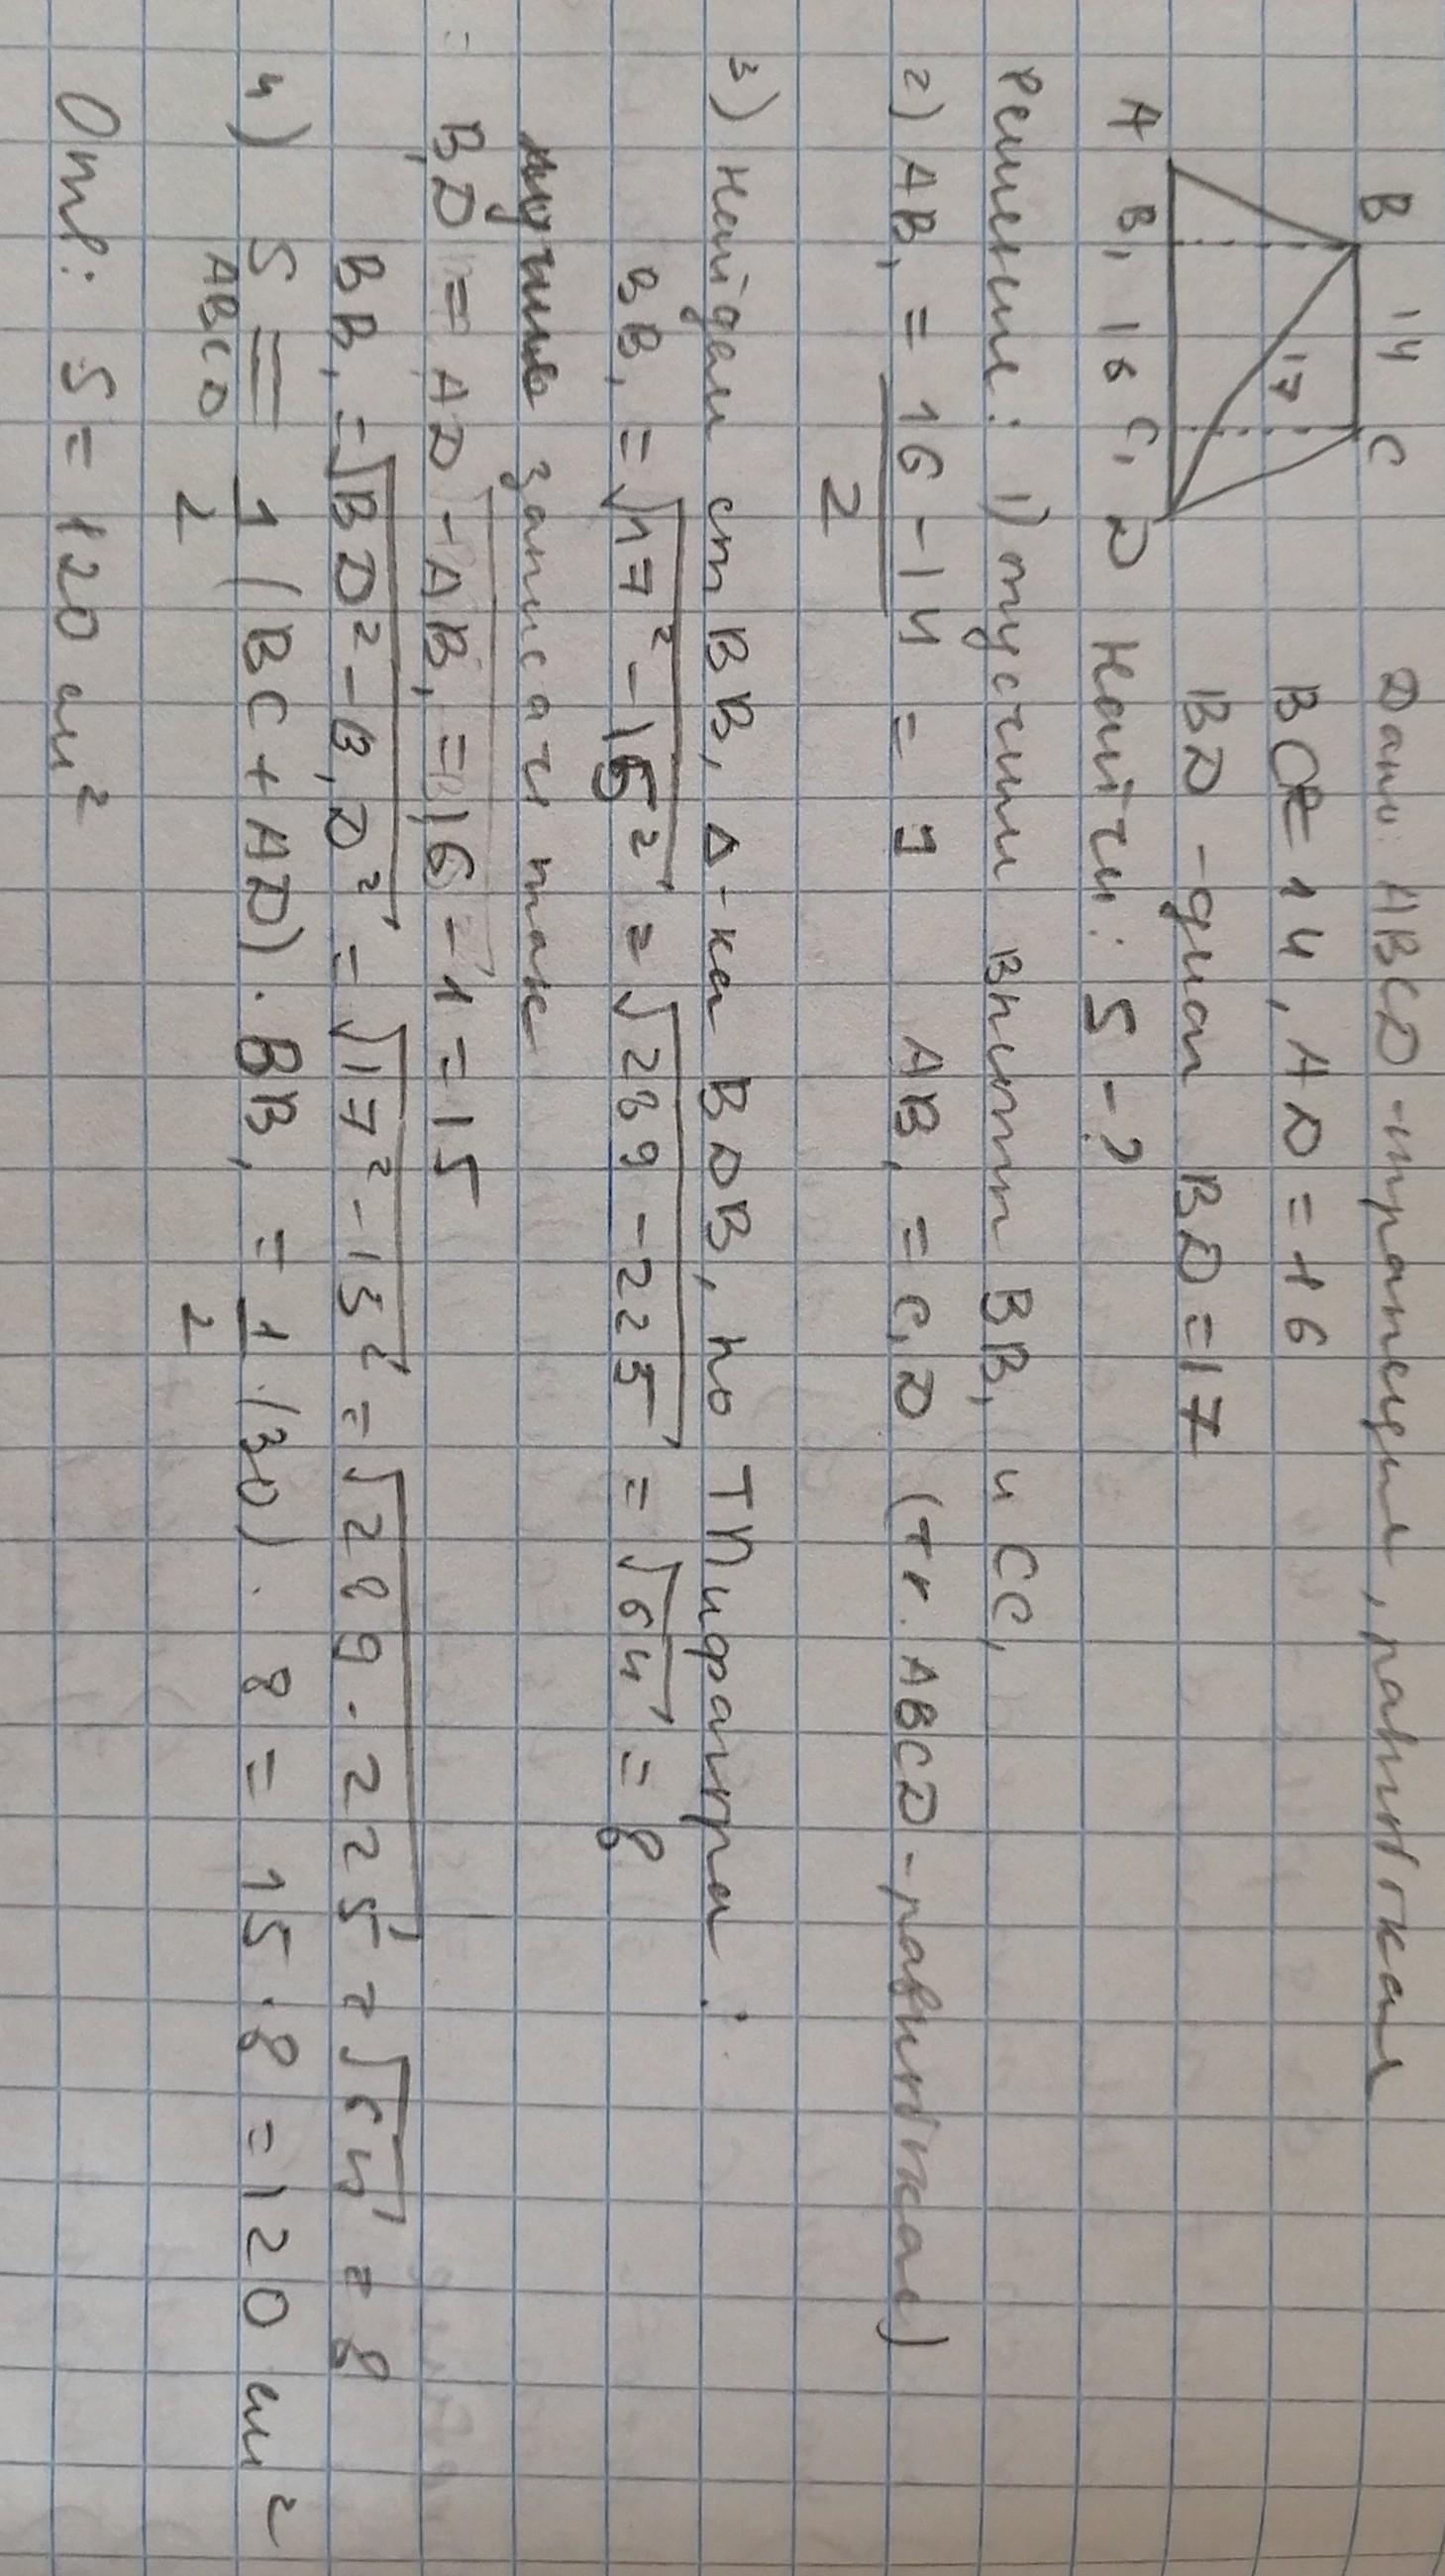 B 14 C
17
A B₁ 16 C₁ D
Дано: ABCD - трапеция, равнобокая
BC = 14, AD = 16
BD - диаг BD = 17
Найти: S - ?
Решение: 1) опустим высоты BB₁ и CC₁
2) AB₁ = (16 - 14)/2 = 1 AB₁ = C₁D (тк. ABCD - равнобокая)
3) Найдем ст BB₁ Δ-ка BDB₁ по Т Пифагора:
BB₁ = √(17² - 15²) = √(289 - 225) = √64 = 8
лучше записать так
B₁D = AD - AB₁ = 16 - 1 = 15
BB₁ = √(BD² - B₁D²) = √(17² - 15²) = √(289 · 225) = √64 = 8
4) S ABCD = 1/2 (BC + AD) · BB₁ = 1/2 · (30) · 8 = 15 · 8 = 120 см²
Отв: S = 120 см²